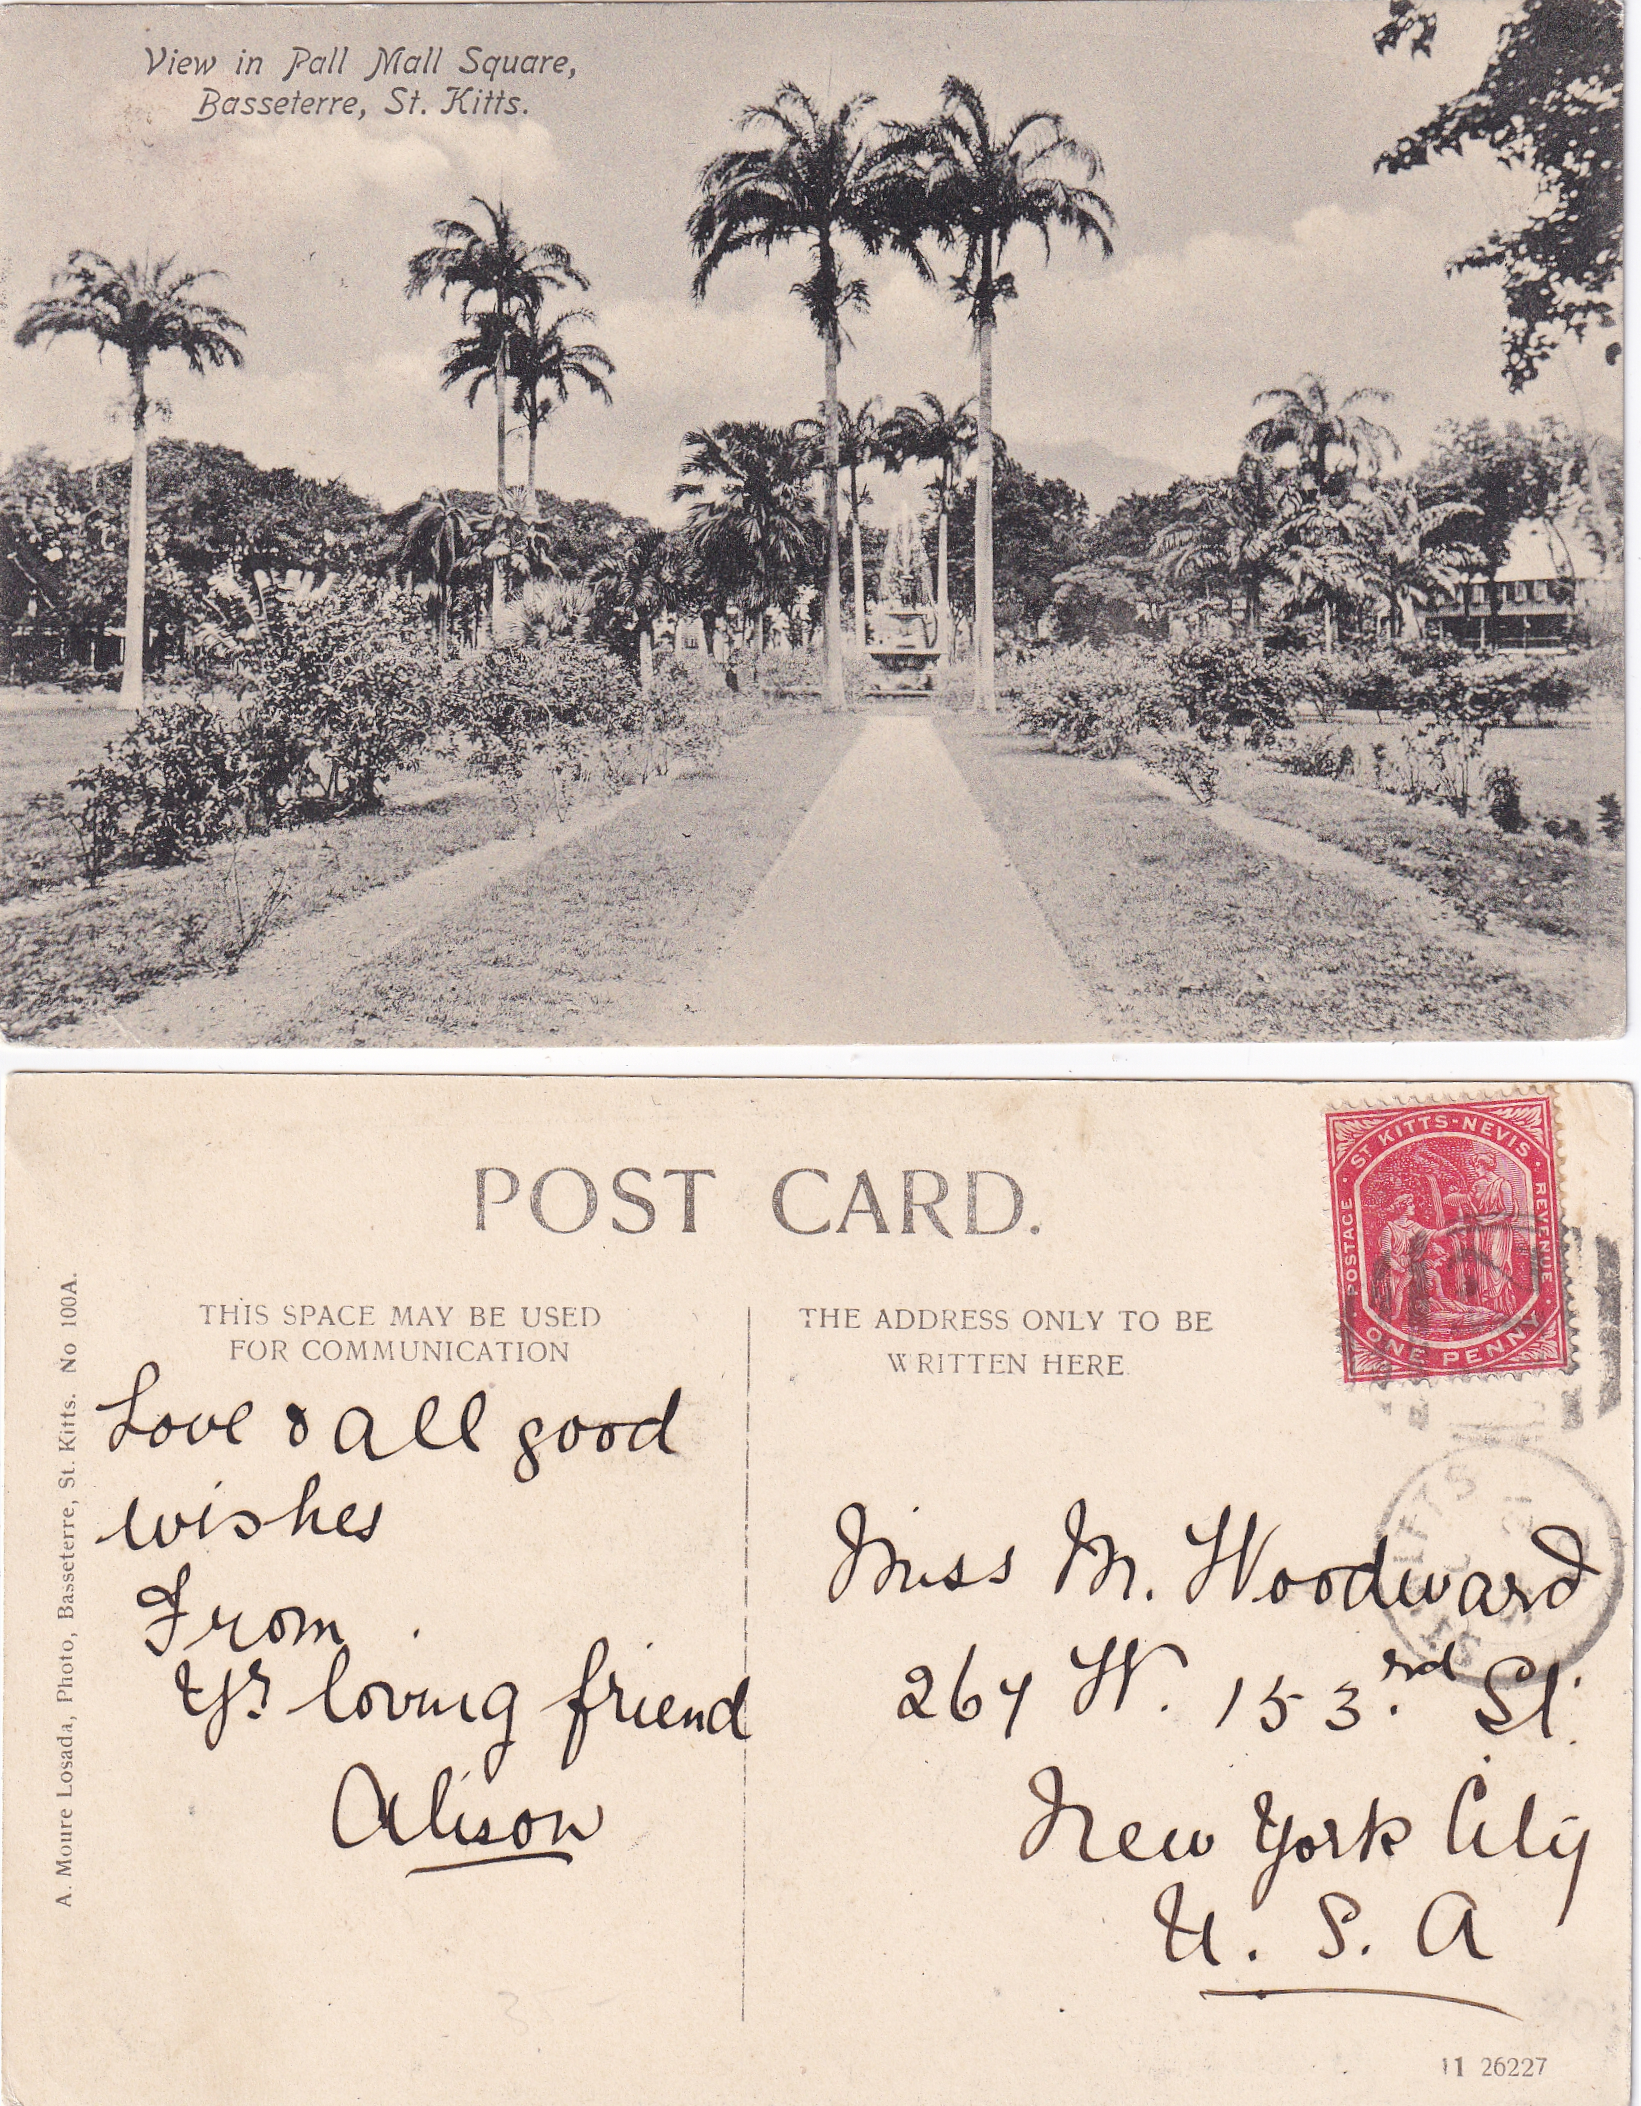 View in Pall Mall Square,
Basseterre, St. Kitts.
POST CARD.
THIS SPACE MAY BE USED
FOR COMMUNICATION
THE ADDRESS ONLY TO BE
WRITTEN HERE
ST KITTS-NEVIS
POSTAGE
REVENUE
ONE PENNY
A. Moure Losada, Photo, Basseterre, St. Kitts. No 100A.
Love & all good
wishes
From
Yrs loving friend
Alison
Miss M. Woodward
267 W. 153rd St.
New York City
U. S. A
11 26227